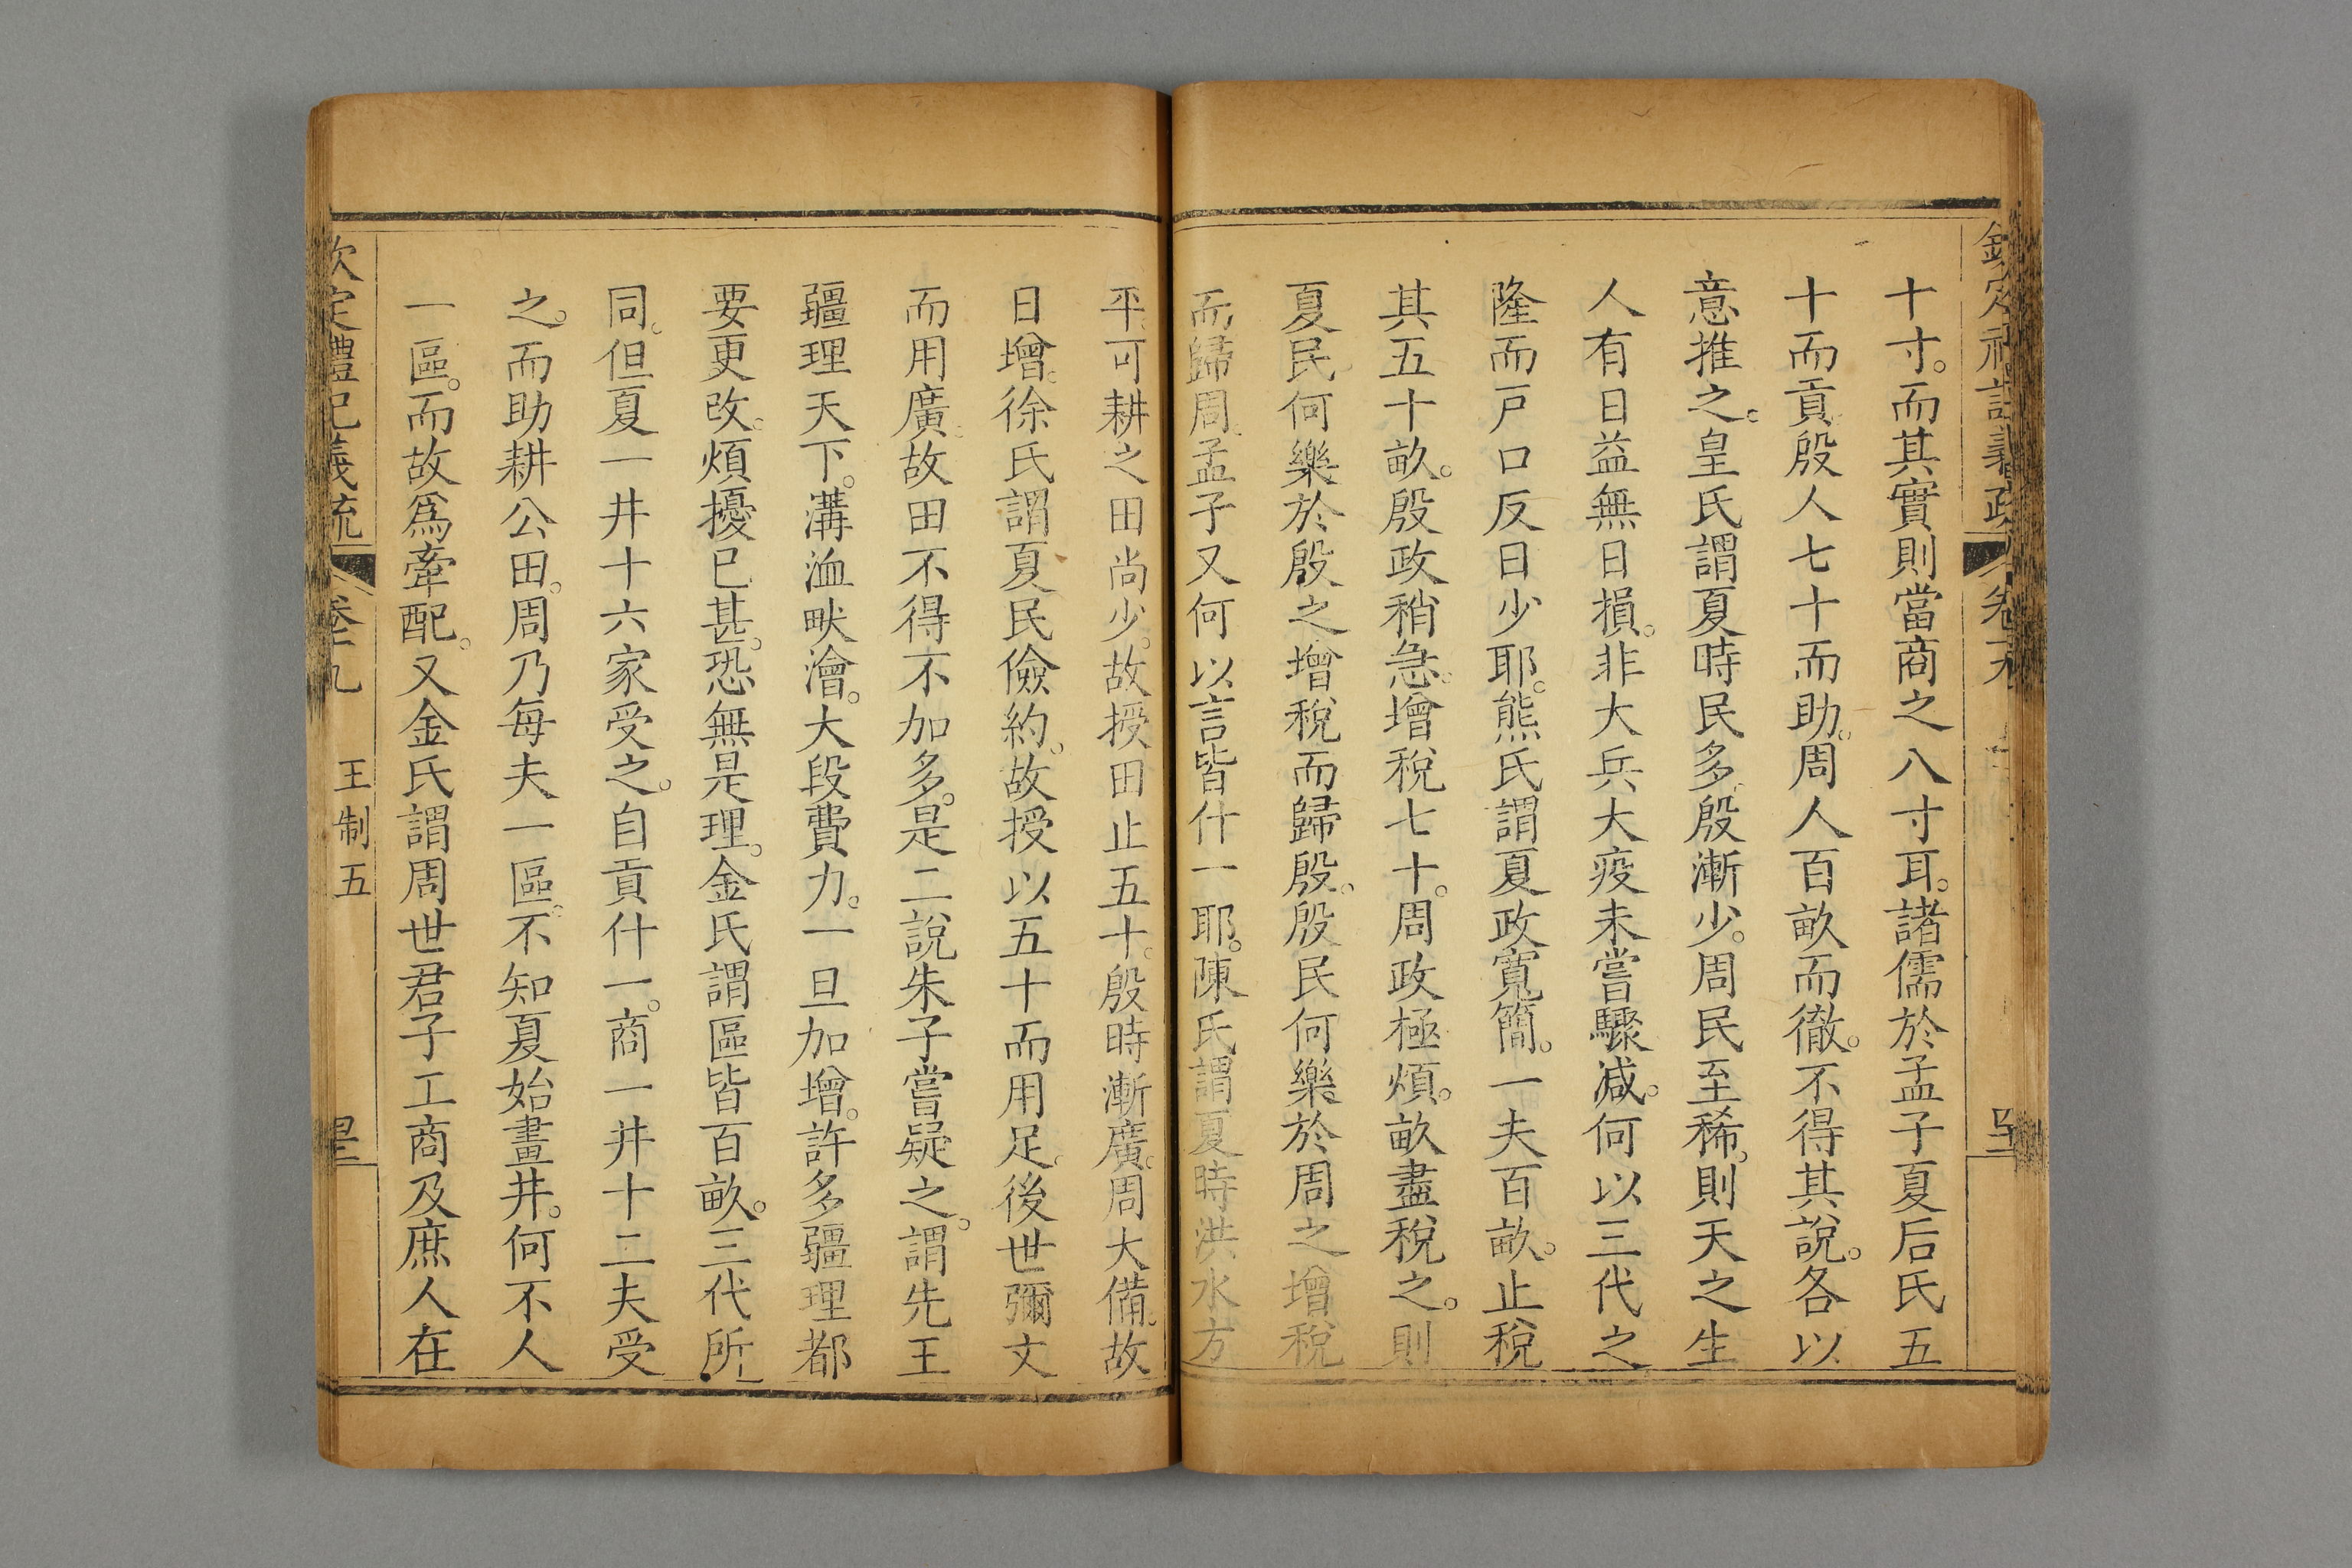 十寸。而其實則當商之八寸耳。諸儒於孟子夏后氏五
十而貢。殷人七十而助。周人百畝而徹。不得其說。各以
意推之。皇氏謂夏時民多。殷漸少。周民至稀。則天之生
人有日益無日損。非大兵大疫未嘗驟减。何以三代之
隆而戸口反日少耶。熊氏謂夏政寬簡。一夫百畝。止稅
其五十畝。殷政稍急。增稅七十。周政極煩。畝盡稅之。則
夏民何樂於殷之增稅而歸殷。殷民何樂於周之增稅
而歸周。孟子又何以言皆什一耶。陳氏謂夏時洪水方
平。可耕之田尚少。故授田止五十。殷時漸廣。周大備。故
日增。徐氏謂夏民儉約。故授以五十而用足。後世彌文
而用廣。故田不得不加多。是二說朱子嘗疑之。謂先王
疆理天下。溝洫畎澮。大段費力。一旦加增。許多疆理都
要更改。煩擾已甚。恐無是理。金氏謂區皆百畝。三代所
同。但夏一井十六家受之。自貢什一。商一井十二夫受
之。而助耕公田。周乃每夫一區。不知夏始畫井。何不人
一區。而故爲牽配。又金氏謂周世君子工商及庶人在
欽定禮記義疏
卷十九
王制五